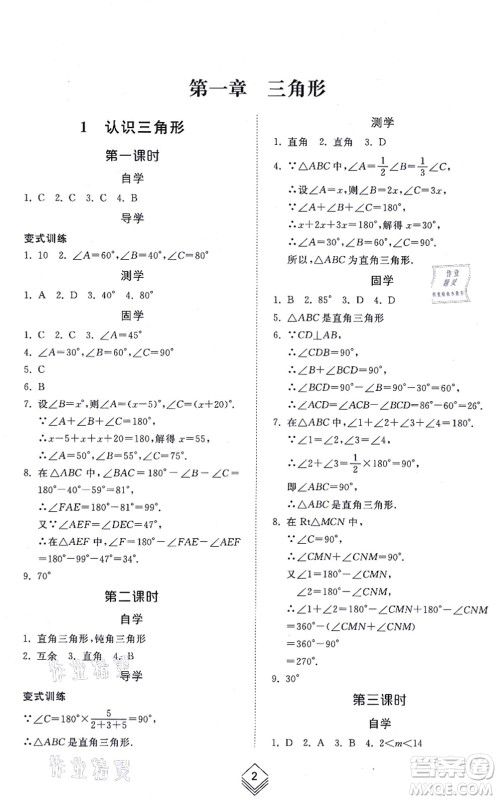 第一章 三角形
1 认识三角形
第一课时
自学
1. C 2. C 3. C 4. C
导学
变式训练
1. 10 2. ∠A=60°,∠B=40°,∠C=80°
测学
1. A 2. D 3. 40° 4. D
固学
1. C 2. B 3. ∠A=45°
4. ∠A=30°,∠B=60°,∠C=90°
5. C
6. B
7. 设∠B=x°,则∠A=(x-5)°,∠C=(x+20)°.
∵∠A+∠B+∠C=180°,
∴x-5+x+x+20=180.
∴x=55.
∴∠A=50°,∠B=55°,∠C=75°.
8. 在△ABC中,∠BAC=180°-∠B-∠C
=180°-59°-47°=74°,
∴∠EAF=∠BAC=74°.
∵∠AEF=∠DEC=47°,
∴在△AEF中,∠F=180°-∠EAF-∠AEF
=180°-74°-47°=59°.
9. 70°
第二课时
自学
1. 直角三角形,钝角三角形
2. 互余 3. 直角 4. B
导学
变式训练
∵∠C=180°×5/(2+3+5)=90°,
∴△ABC是直角三角形.
测学
1. 直角 2. 直角 3. D
4. ∵△ABC中,∠A=1/2∠B=1/3∠C,
∴设∠A=x,则∠B=2x,∠C=3x,
∴x+2x+3x=180°,
解得x=30°,
∴∠C=3x=90°.
所以,△ABC为直角三角形.
固学
1. B 2. 85° 3. D 4. B
5. △ABC是直角三角形
6. ∵CD⊥AB,
∴∠CDB=90°,
∴∠EDF+∠CDE=90°,
∵∠EDF+∠F=90°,
∴∠F=∠CDE,
∴∠F=90°-∠B=86°-60°=26°.
7. ∵∠1+∠2+∠3+∠4=180°,
又∵∠2=∠3,∠1=∠4,
∴∠1+∠2=1/2×180°=90°,
即∠ACB=90°,
∴△ABC是直角三角形.
8. 在Rt△MCN中,
∵∠C=90°,
∴∠CMN+∠CNM=90°.
又∵∠1=180°-∠CMN,
∠2=180°-∠CNM,
∴∠1+∠2=180°-∠CMN+180°-∠CNM
=360°-(∠CMN+∠CNM)
=360°-90°
=270°.
9. 30°
第三课时
自学
1. D 2. D 3. A 4. 2<m<14
2
作业精灵
答案圈
MXQE.COM